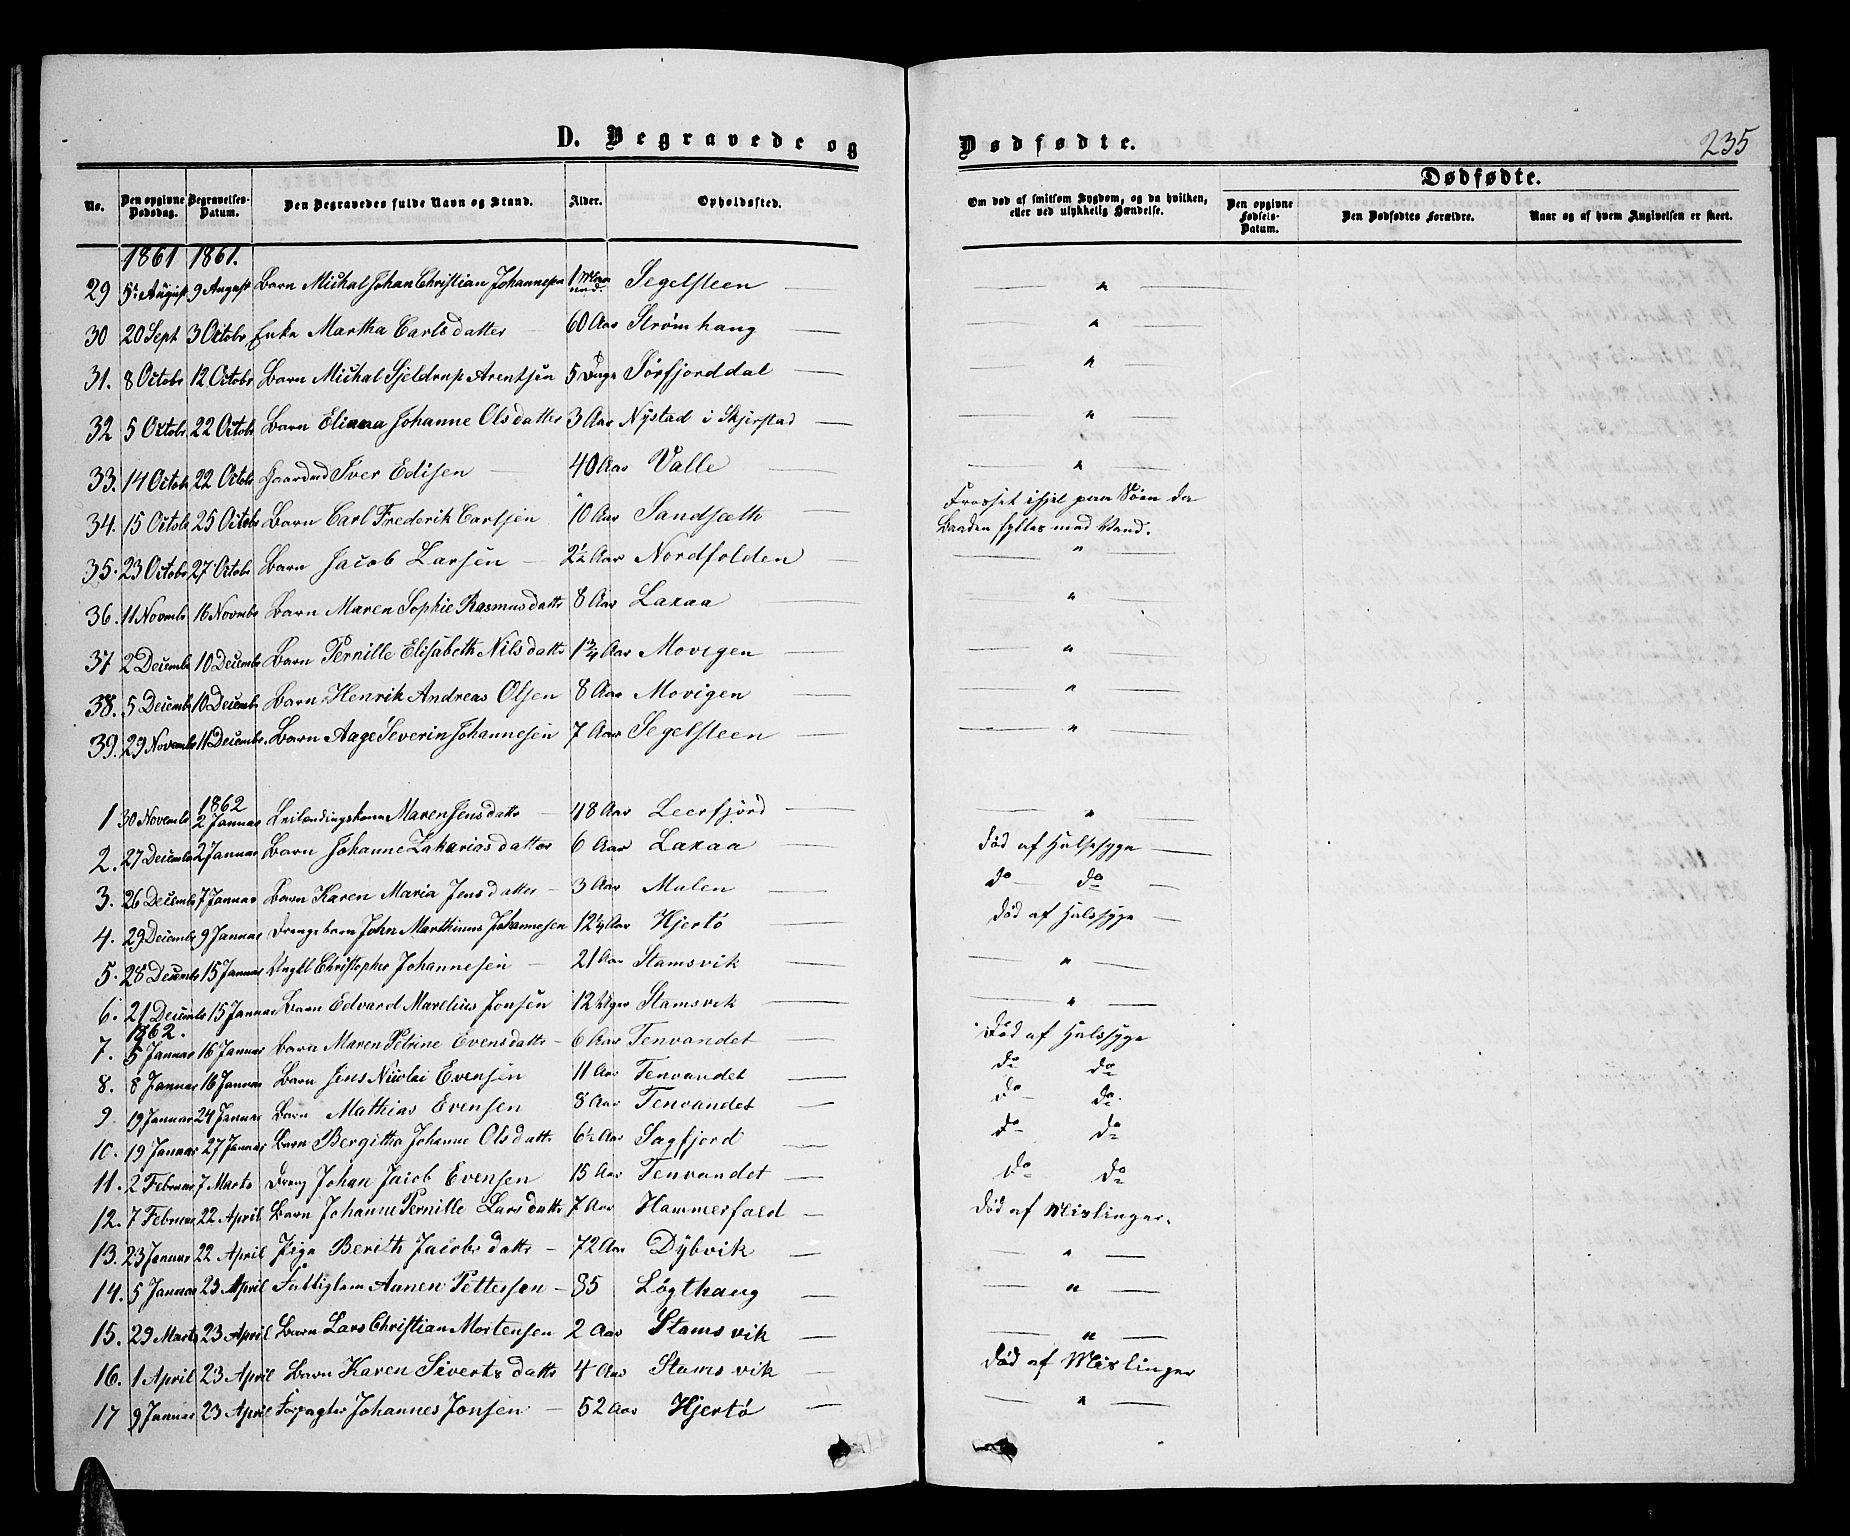 D. Begravede og Dødfødte. 235
No. Den opgivne Dødsdag. Begravelses-Datum. Den Begravedes fulde Navn og Stand. Alder. Opholdssted. Om død af smitsom Sygdom, og da hvilken, eller ved ulykkelig Hændelse. Dødfødte. Den opgivne Fødsels-Datum. Den Dødfødtes Forældre. Naar og af hvem Angivelsen er skeet.
1861 1861.
29 5te August 9 August Barn Michal Johan Christian Johannesen 1 Maaned. Segelsteen — "
30 20 Sept 3 Octobr Enke Martha Carlsdatter 60 Aar Strømhaug — "
31. 8 Octobr 12 Octobr Barn Michal Sjeldrup Arentsen 5 Dage Sörfjorddal — "
32 5 Octobr 22 Octobr Barn Elinna Johanne Olsdatter 3 Aar Nystad i Skjerstad — "
33. 14 Octobr 22 Octobr Gaardmd Iver Edisen — 40 Aar Valle — "
34. 15 Octobr 25 Octobr Barn Carl Frederik Carlsen 10 Aar Sandsæth — Frosset ihjel paa Söen da
Baaden fyltes med Vand.
35. 23 Octobr 27 Octobr Barn Jacob Larsen — 2½ Aar Nordfolden — "
36. 11 Novembr 16 Novembr Barn Maren Sophie Rasmusdattr 8 Aar Laxaa — "
37 2 Decembr 10 Decembr Barn Pernille Elisabeth Nilsdattr 1¾ Aar Movigen — "
38. 5 Decembr 10 Decembr Barn Henrik Andreas Olsen 8 Aar Movigen — "
39. 29 Novembr 11 Decembr. Barn Aage Severin Johannesen 7 Aar Segelsteen — "
1862
1 30 Novembr 2 Januar Leilændingskone Maren Jensdattr — 48 Aar Leerfjord — "
2. 27 Decembr 2 Januar Barn Johanne Zakariasdatter 6 Aar Laxaa — Död af Halssyge —
3. 26 Decembr 7 Januar Barn Karen Maria Jensdatter — 3 Aar Mulen — do — do —
4. 29 Decembr 9 Januar Drengebarn John Marthinus Johannesen 12¼ Aar Hjertö — Död af Halssyge —
5. 28 Decembr 15 Januar Ungkl Christopher Johannesen — 21 Aar Stamsvik — "
6. 21 Decembr 15 Januar Barn Edvard Marelius Jonsen 12 Uger Stamsvik — "
1862.
7. 5 Januar 16 Januar Barn Maren Petrine Evensdattr — 6 Aar Tenvandet — Död af Halssyge
8. 8 Januar 16 Januar Barn Jens Nicolai Evensen 11 Aar Tenvandet — do do
9. 19 Januar 24 Januar Barn Mathias Evensen 8 Aar Tenvandet — do — do.
10. 19 Januar 27 Januar Barn Bergitha Johanne Olsdattr 6½ Aar Sagfjord — do do
11. 2 Februar 7 Marts Dreng Johan Jacob Evensen 15 Aar Tenvandet — do do
12. 7 Februar 22 April Barn Johanne Pernille Larsdattr 7 Aar Hammerfald — Död af Mislinger.
13. 23 Januar 22 April Pige Berith Jacobsdattr — 72 Aar Dybvik — "
14. 5 Januar 23 April Fattiglem Aanen Pettersen — 85 Løgthaug — "
15. 29 Marts 23 April Barn Lars Christian Mortensen 2 Aar Stamsvik — "
16. 1 April 23 April Barn Karen Sivertsdattr 4 Aar Stamsvik — Död af Mislinger
17 9 Januar 23 April Forpagter Johannes Jonsen — 52 Aar Hjertö — "